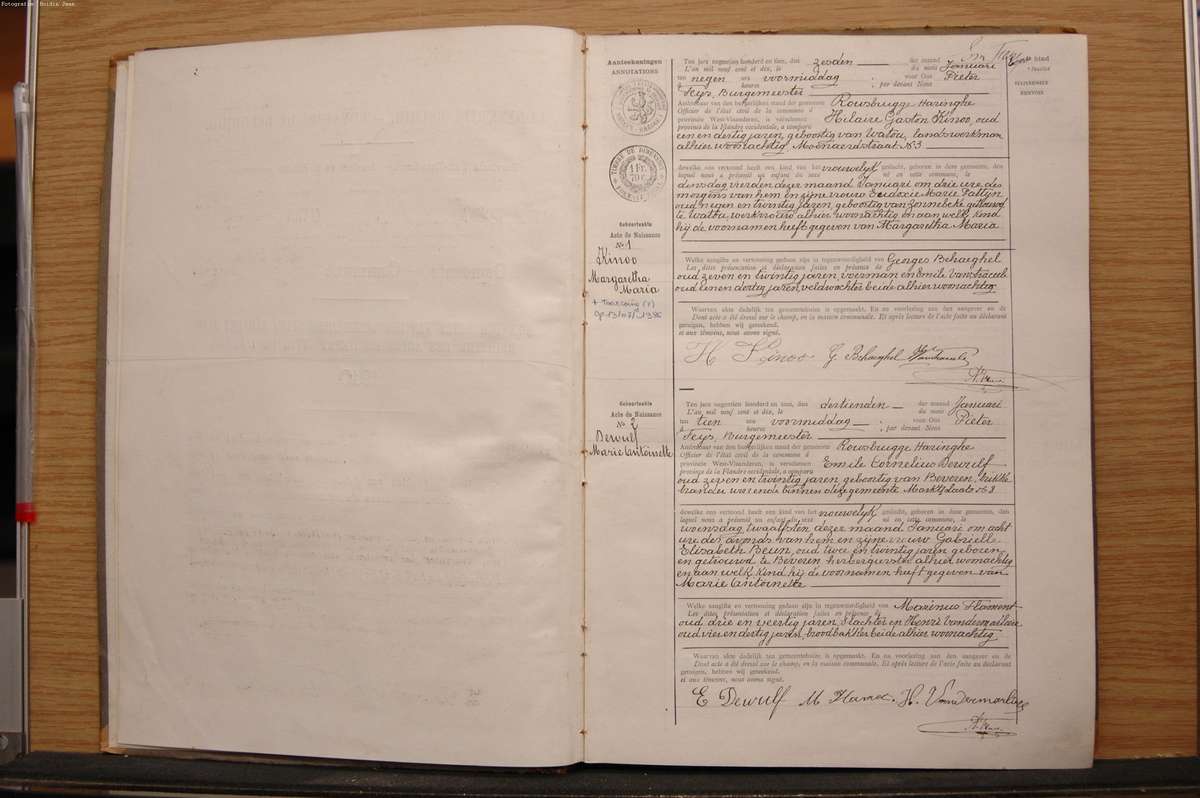 Fotografie: Boidin Jean
Aanteekeningen
ANNOTATIONS
TIMBRE DE DIMENSION
1 Fr.
70 c.
Geboorteakte
Acte de Naissance
N° 1
Kinoo
Margaretha
Maria
+ Tourcoing (F)
op 13/02/1986
Geboorteakte
Acte de Naissance
N° 2
Dewulf
Marie Antoinette
blad
feuillet
Ten jare negentien honderd en tien, den zesden der maand Januari
L'an mil neuf cent et dix, le du mois
ten negen ure voormiddag ; voor Ons Pieter
à heures ; par devant Nous
Feys, Burgemeester
Ambtenaar van den burgerlijken stand der gemeente Rousbrugge Haringhe
Officier de l'état civil de la commune d
provincie West-Vlaanderen, is verschenen Hilaire Gaston Kinoo, oud
province de la Flandre occidentale, a comparu
een en dertig jaren, geboortig van Watou, landswerkman
alhier woonachtig, Moenaerdstraat N 3
dewelke ons vertoond heeft een kind van het vrouwelyk geslacht, geboren in deze gemeente, den
lequel nous a présenté un enfant du sexe né en cette commune, le
dinsdag vierden dezer maand Januari om drie ure des
morgens van hem en zijne vrouw Eudoxie Marie Pattyn
oud negen en twintig jaren, geboortig van Zonnebeke getrouwd
te Watou, werkvrouw alhier woonachtig en aan welk kind
hij de voornamen heeft gegeven van Margaretha Maria
Welke aangifte en vertooning gedaan zijn in tegenwoordigheid van Georges Behaeghel
Les dites présentation et déclaration faites en présence de
oud zeven en twintig jaren, voerman en Emile Vanstraceele
oud een en dertig jaren, veldwachter beide alhier woonachtig
Waarvan akte dadelijk ten gemeentehuize is opgemaakt. En na voorlezing aan den aangever en de
Dont acte a été dressé sur le champ, en la maison communale. Et après lecture de l'acte faite au déclarant
getuigen, hebben wij geteekend.
et aux témoins, nous avons signé.
H Kinoo G. Behaeghel
Ten jare negentien honderd en tien, den dertienden der maand Januari
L'an mil neuf cent et dix, le du mois
ten tien ure voormiddag ; voor Ons Pieter
à heures ; par devant Nous
Feys, Burgemeester
Ambtenaar van den burgerlijken stand der gemeente Rousbrugge Haringhe
Officier de l'état civil de la commune d
provincie West-Vlaanderen, is verschenen Emile Cornelius Dewulf
province de la Flandre occidentale, a comparu
oud zeven en twintig jaren, geboortig van Beveren, brikke
brander wonende binnen deze gemeente Marktplaats N 3
dewelke ons vertoond heeft een kind van het vrouwelyk geslacht, geboren in deze gemeente, den
lequel nous a présenté un enfant du sexe né en cette commune, le
woensdag twaalfsten dezer maand Januari om acht
ure des avonds van hem en zijne vrouw Gabrielle
Elisabeth Beun, oud twee en twintig jaren geboren
en getrouwd te Beveren herbergierster alhier woonachtig
en aan welk kind hij de voornamen heeft gegeven van
Marie Antoinette
Welke aangifte en vertooning gedaan zijn in tegenwoordigheid van Marinus Flament
Les dites présentation et déclaration faites en présence de
oud drie en veertig jaren, slachter en Henri Vandermarliere
oud vier en dertig jaren, broodbakker beide alhier woonachtig
Waarvan akte dadelijk ten gemeentehuize is opgemaakt. En na voorlezing aan den aangever en de
Dont acte a été dressé sur le champ, en la maison communale. Et après lecture de l'acte faite au déclarant
getuigen, hebben wij geteekend.
et aux témoins, nous avons signé.
E Dewulf M H. Vandermarliere